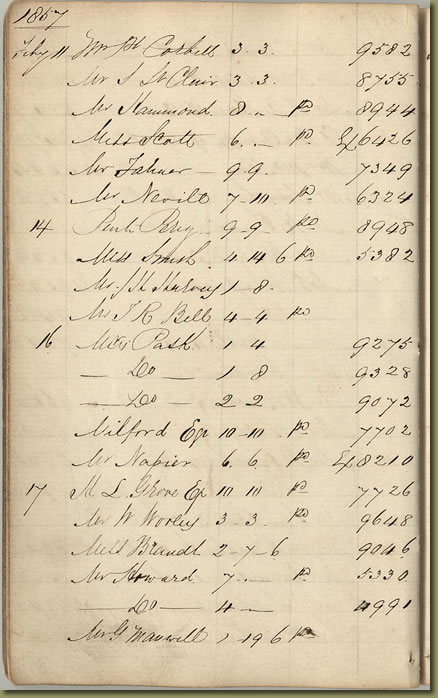 1857
Feby 11 Wm H Corbett 3. 3. 9582
Mr S St Clair 3. 3. 8755
Mr Hammond. 8. „ — pd 8944
Miss Scott 6. — pd Ex 6426
Mr — 9-9. 7349
Mr Nevile 7-10 pd 6324
14 9-9 pd 8948
Miss Smith. 4 14 6 pd 5382
Mr. J H Harvey 1-8.
Mr T R Bell 4-4 pd
16 Miss Pask 1 4 9275
— Do — 1 8 9328
— Do — 2 2 9072
Milford Eqr 10-10- pd 7702
Mr Napier 6. 6. pd Ex 8210
17 M L Grove Eqr 10 10 pd 7726
Mr W Worley 3-3. pd 9648
Miss Brandt 2-7-6. 9046
Mr Howard. 7. — pd 5330
— Do — 4 — 4991
Mr G Maxwell 1-19 6 pd